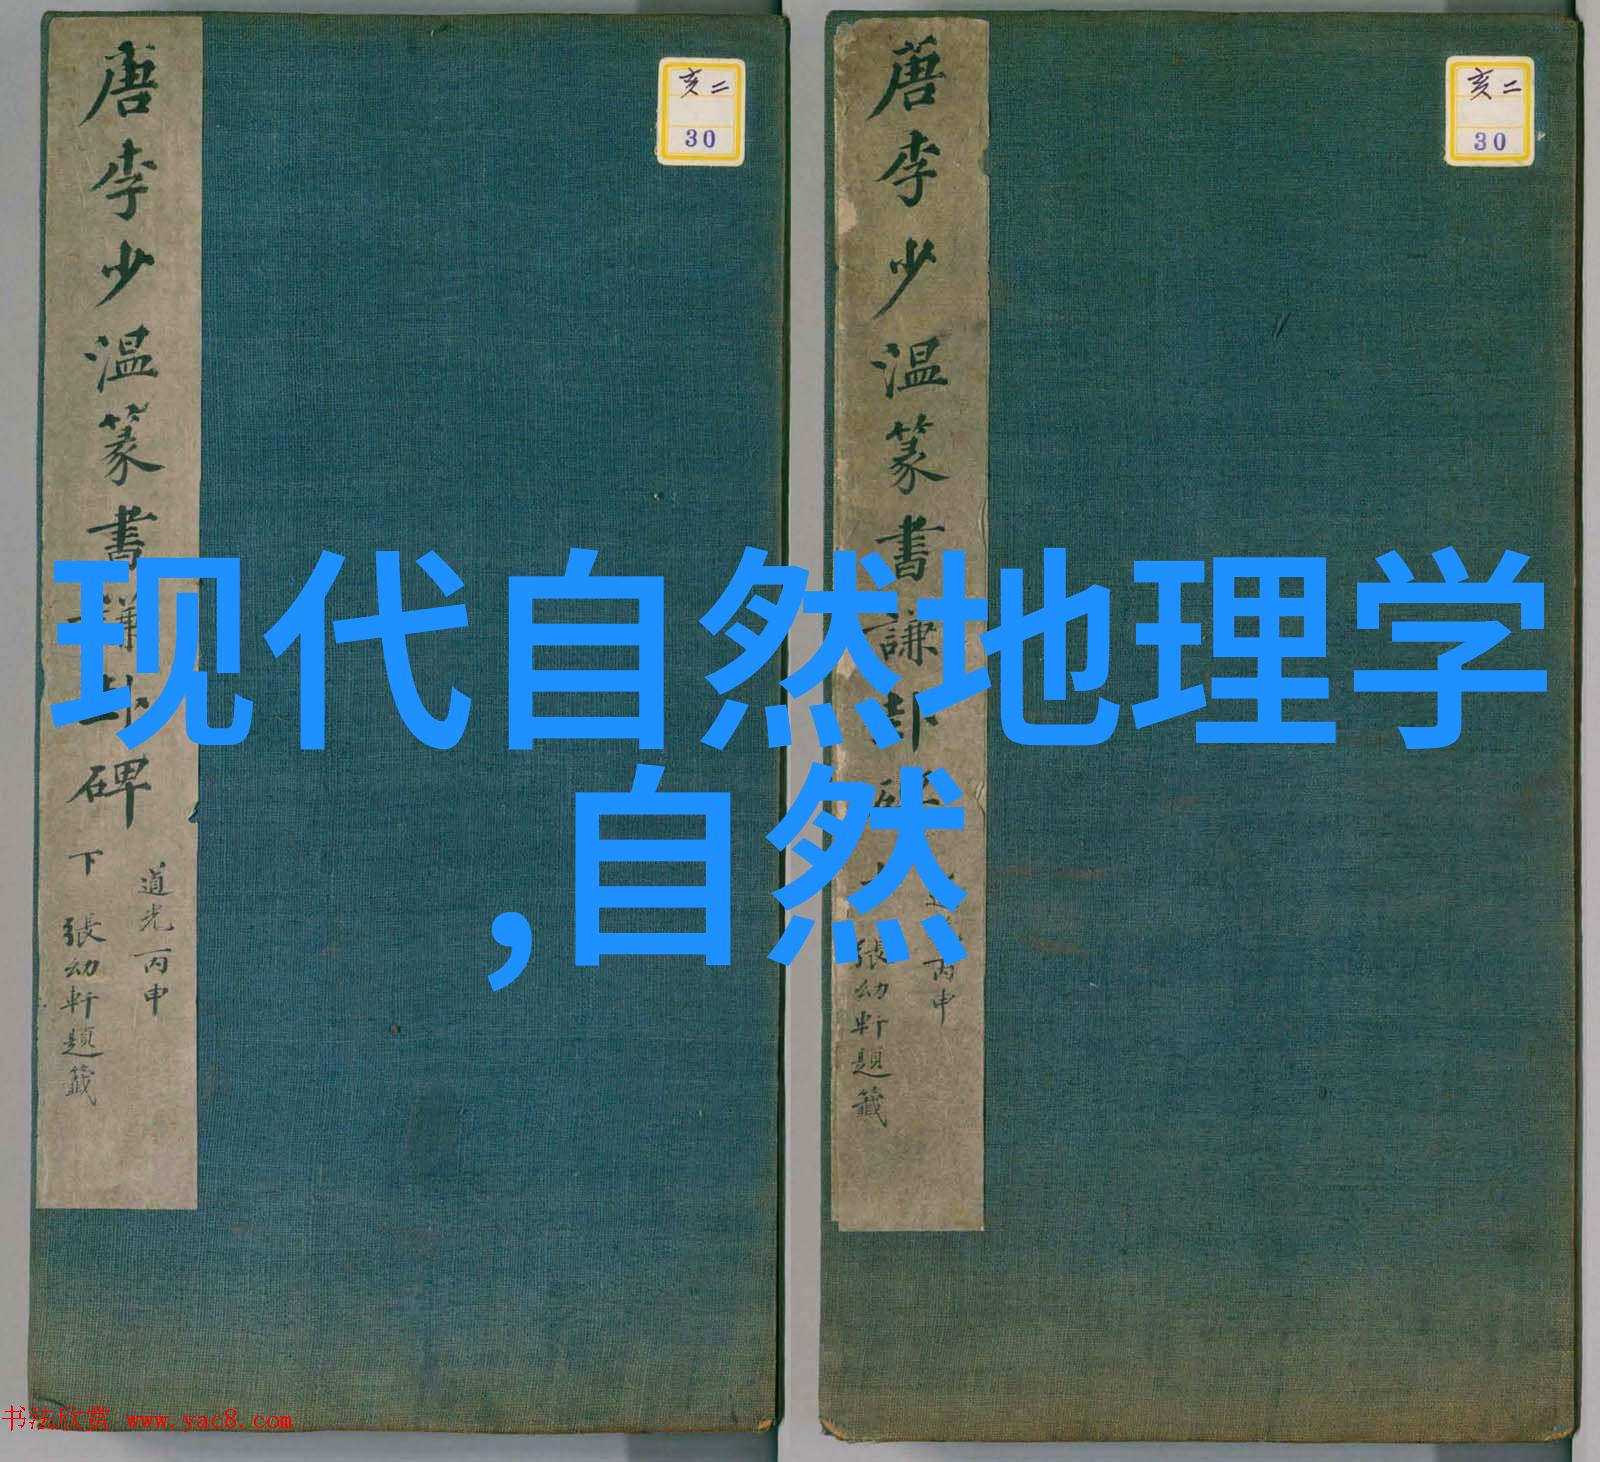 唐李少温篆書謙卦碑
下
道光丙申
張幼軒題籤
亥二
30
唐李少温篆書謙卦碑
張幼軒題籤
丙申
亥二
30
现代自然地理学
,自然
书法欣赏 www.yac8.com